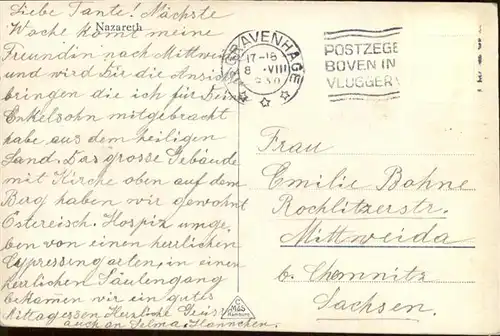 Liebe Tante! Nächste
Woche kommt meine
Nazareth
Freundin nach Mittweida
und wird Dir die Ansichten
bringen die ich für Deinen
Enkelsohn mitgebracht
habe aus dem heiligen
Land. Das grosse Gebäude
mit Kirche oben auf dem
Berg haben wir gewohnt
Östereisch. Hospiz umge,
ben von einen herrlichen
Cypressingarten, in einen
herrlichen Säulengang
bekamen wir ein gutes
Mittagessen Herzliche
auch an Selma, Hannchen.
'S GRAVENHAGE
17-18
8 VIII
POSTZEGE
BOVEN IN
VLUGGER
Frau
Emilie Bohne
Rochlitzerstr.
Mittweida
b. Chemnitz
Sachsen.
M&S
Hamburg